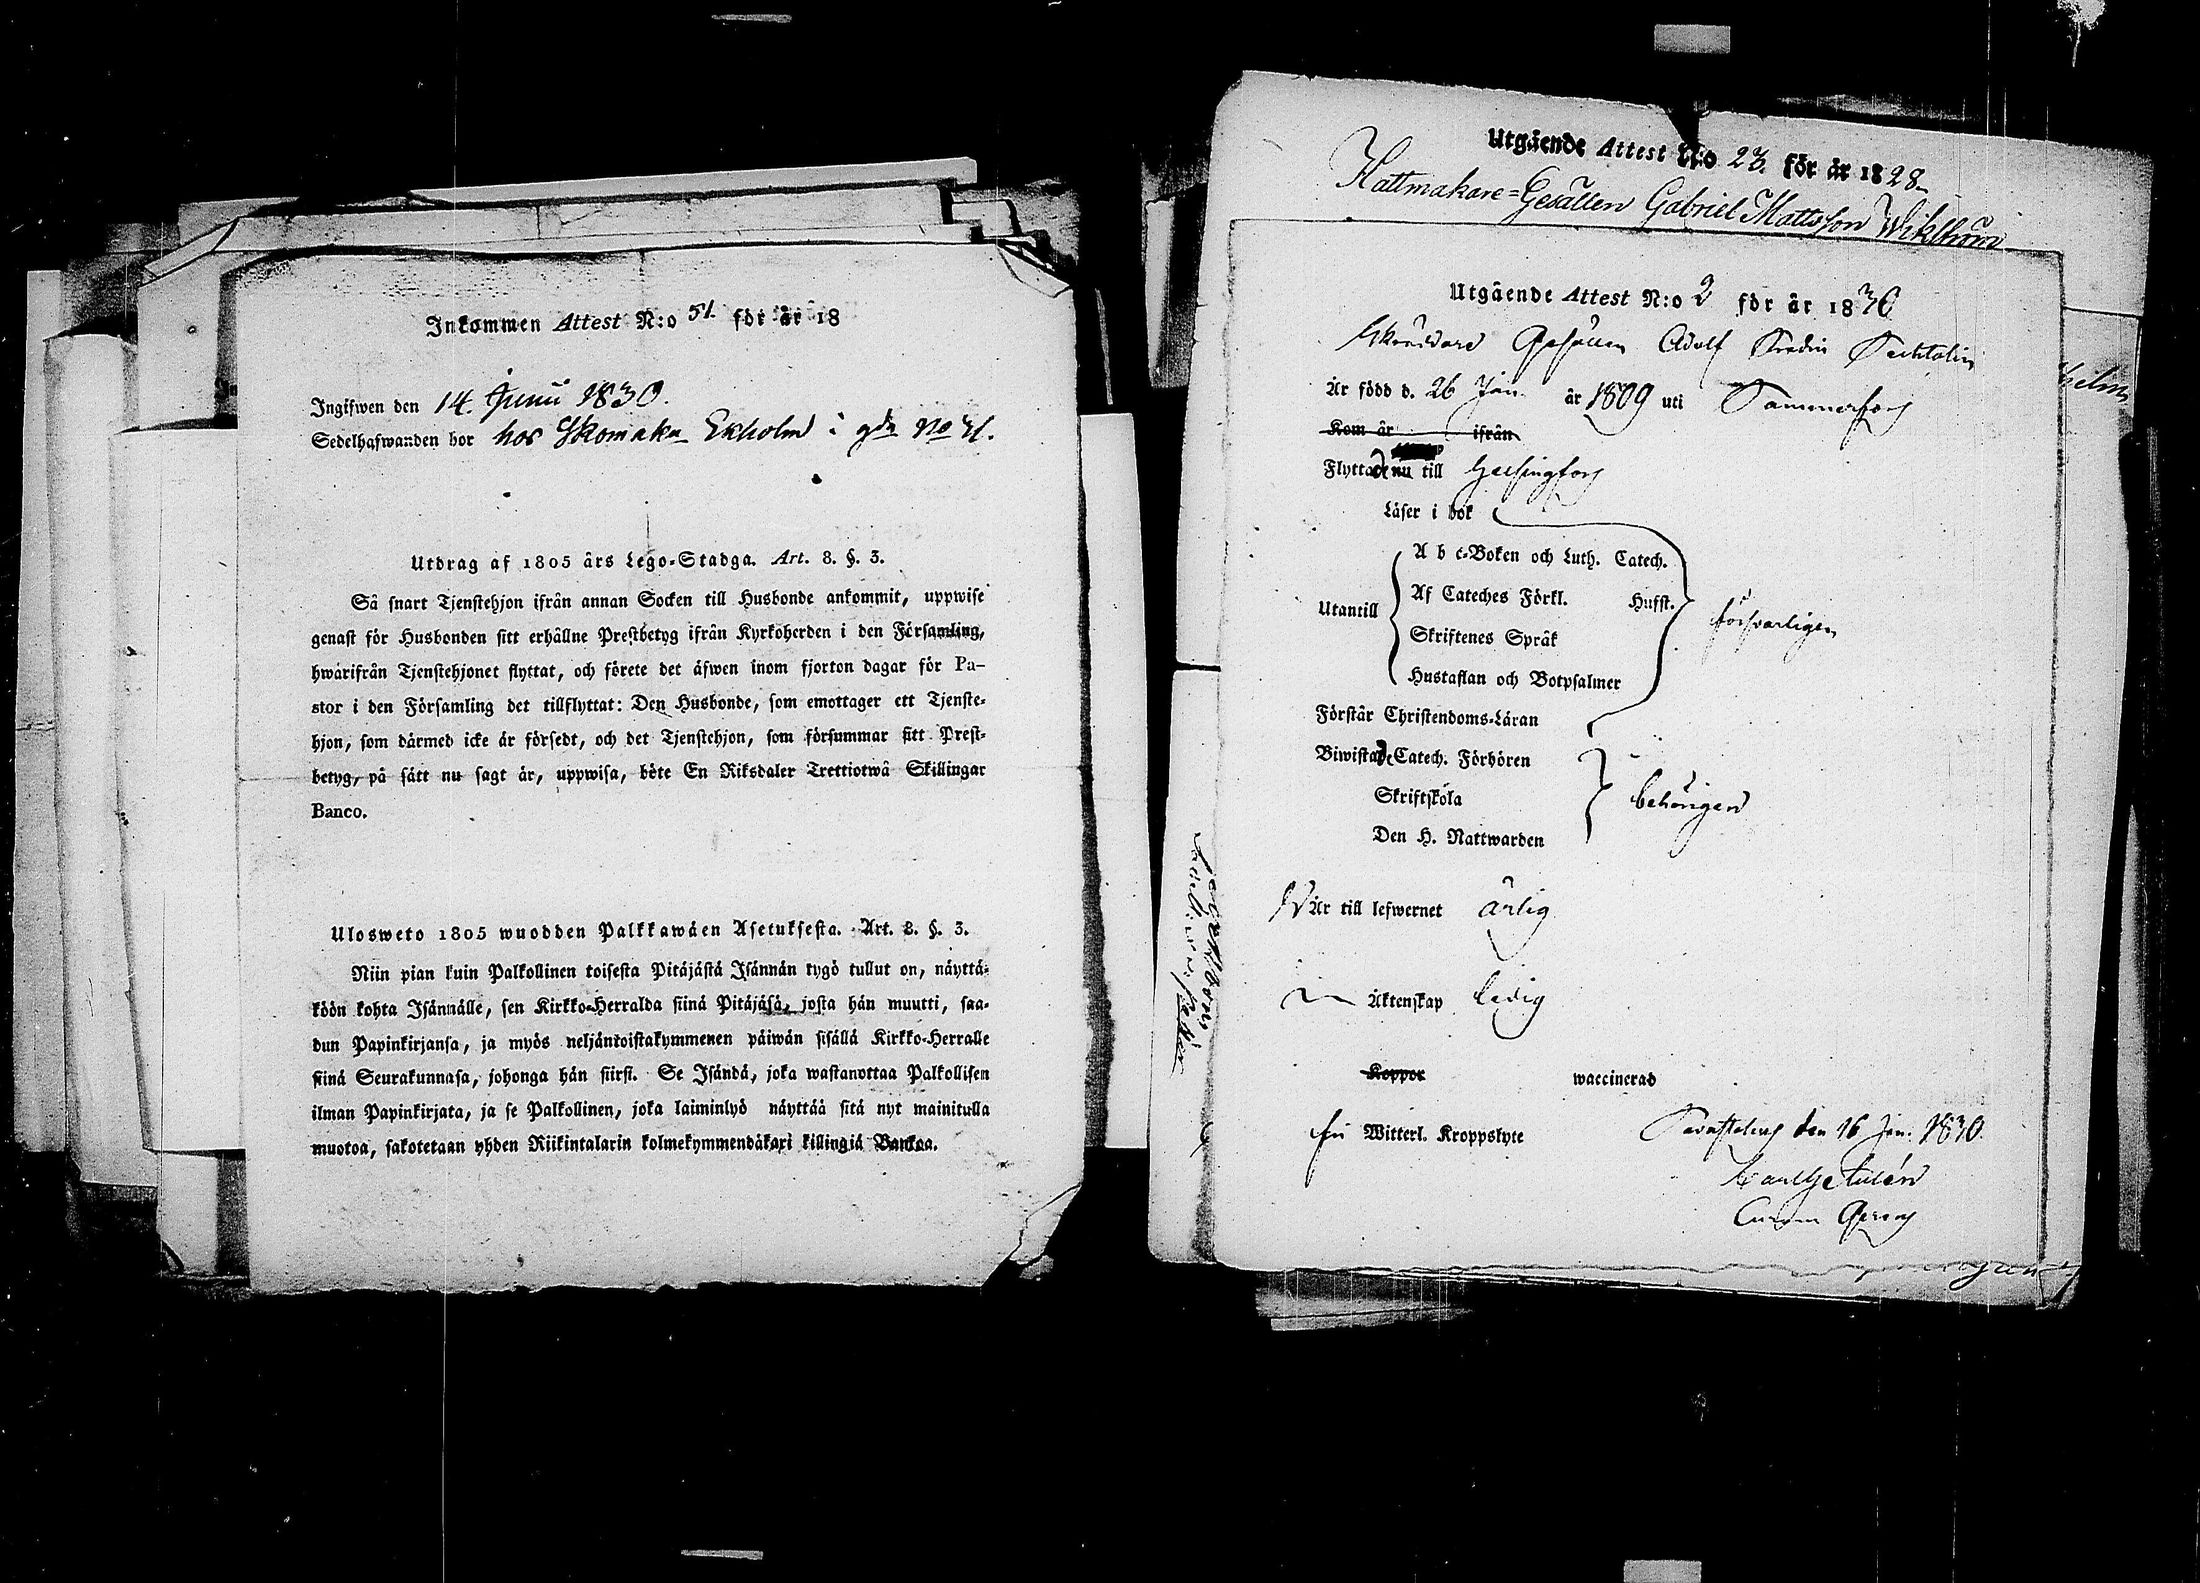 Inkommen Attest N:o 51. för år 18
Ingifwen den 14. Junii 1830.
Sedelhafwanden bor hos Skomakar Ekholm i gdn No 41.
Utdrag af 1805 års Lego-Stadga. Art. 8. §. 3.
Så snart Tjenstehjon ifrån annan Socken till Husbonde ankommit, uppwise
genast för Husbonden sitt erhållne Prestbetyg ifrån Kyrkoherden i den Församling,
hwarifrån Tjenstehjonet flyttat, och förete det äfwen inom fjorton dagar för Pa-
stor i den Församling det tillflyttat: Den Husbonde, som emottager ett Tjenste-
hjon, som därmed icke är försedt, och det Tjenstehjon, som försummar sitt Prest-
betyg, på sätt nu sagt är, uppwisa, böte En Riksdaler Trettiotwå Skillingar
Banco.
Ulosweto 1805 wuodden Palkkawäen Asetuksesta. Art. 8. §. 3.
Niin pian kuin Palkollinen toisesta Pitäjästä Isännän tygö tullut on, näyttä-
köön kohta Isännälle, sen Kirkko-Herralda siinä Pitäjäsä, josta hän muutti, saa-
dun Papinkirjansa, ja myös neljäntoistakymmenen päiwän sisällä Kirkko-Herralle
siinä Seurakunnasa, johonga hän siirsi. Se Isändä, joka wastanottaa Palkollisen
ilman Papinkirjata, ja se Palkollinen, joka laiminlyö näyttää sitä nyt mainitulla
muotoa, sakotetaan yhden Riikintalarin kolmekymmendäkaxi killingiä Bankoa.
Utgående Attest N:o 23. för år 1828.
Hattmakare-Gesällen Gabriel Mattsson Wikström
Utgående Attest N:o 2 för år 1830
Skräddare Gesällen Adolf
Är född d. 26 Jan. år 1809 uti Tammerfors
Kom år ifrån
Flyttade nu till Helsingfors
Läser i bok
A b c-Boken och Luth. Catech.
Utantill
Af Cateches Förkl. Husst.
försvarligen
Skriftenes Språk
Hustaflan och Botpsalmer
Förstår Christendoms-Läran
Biwistade Catech. Förhören
Skriftskola
behörigen
Den H. Nattwarden
Är till lefwernet ärlig
Äktenskap ledig
Koppor waccinerad
fri Witterl. Kroppslyte
Tavastehus den 16 Jan. 1830.